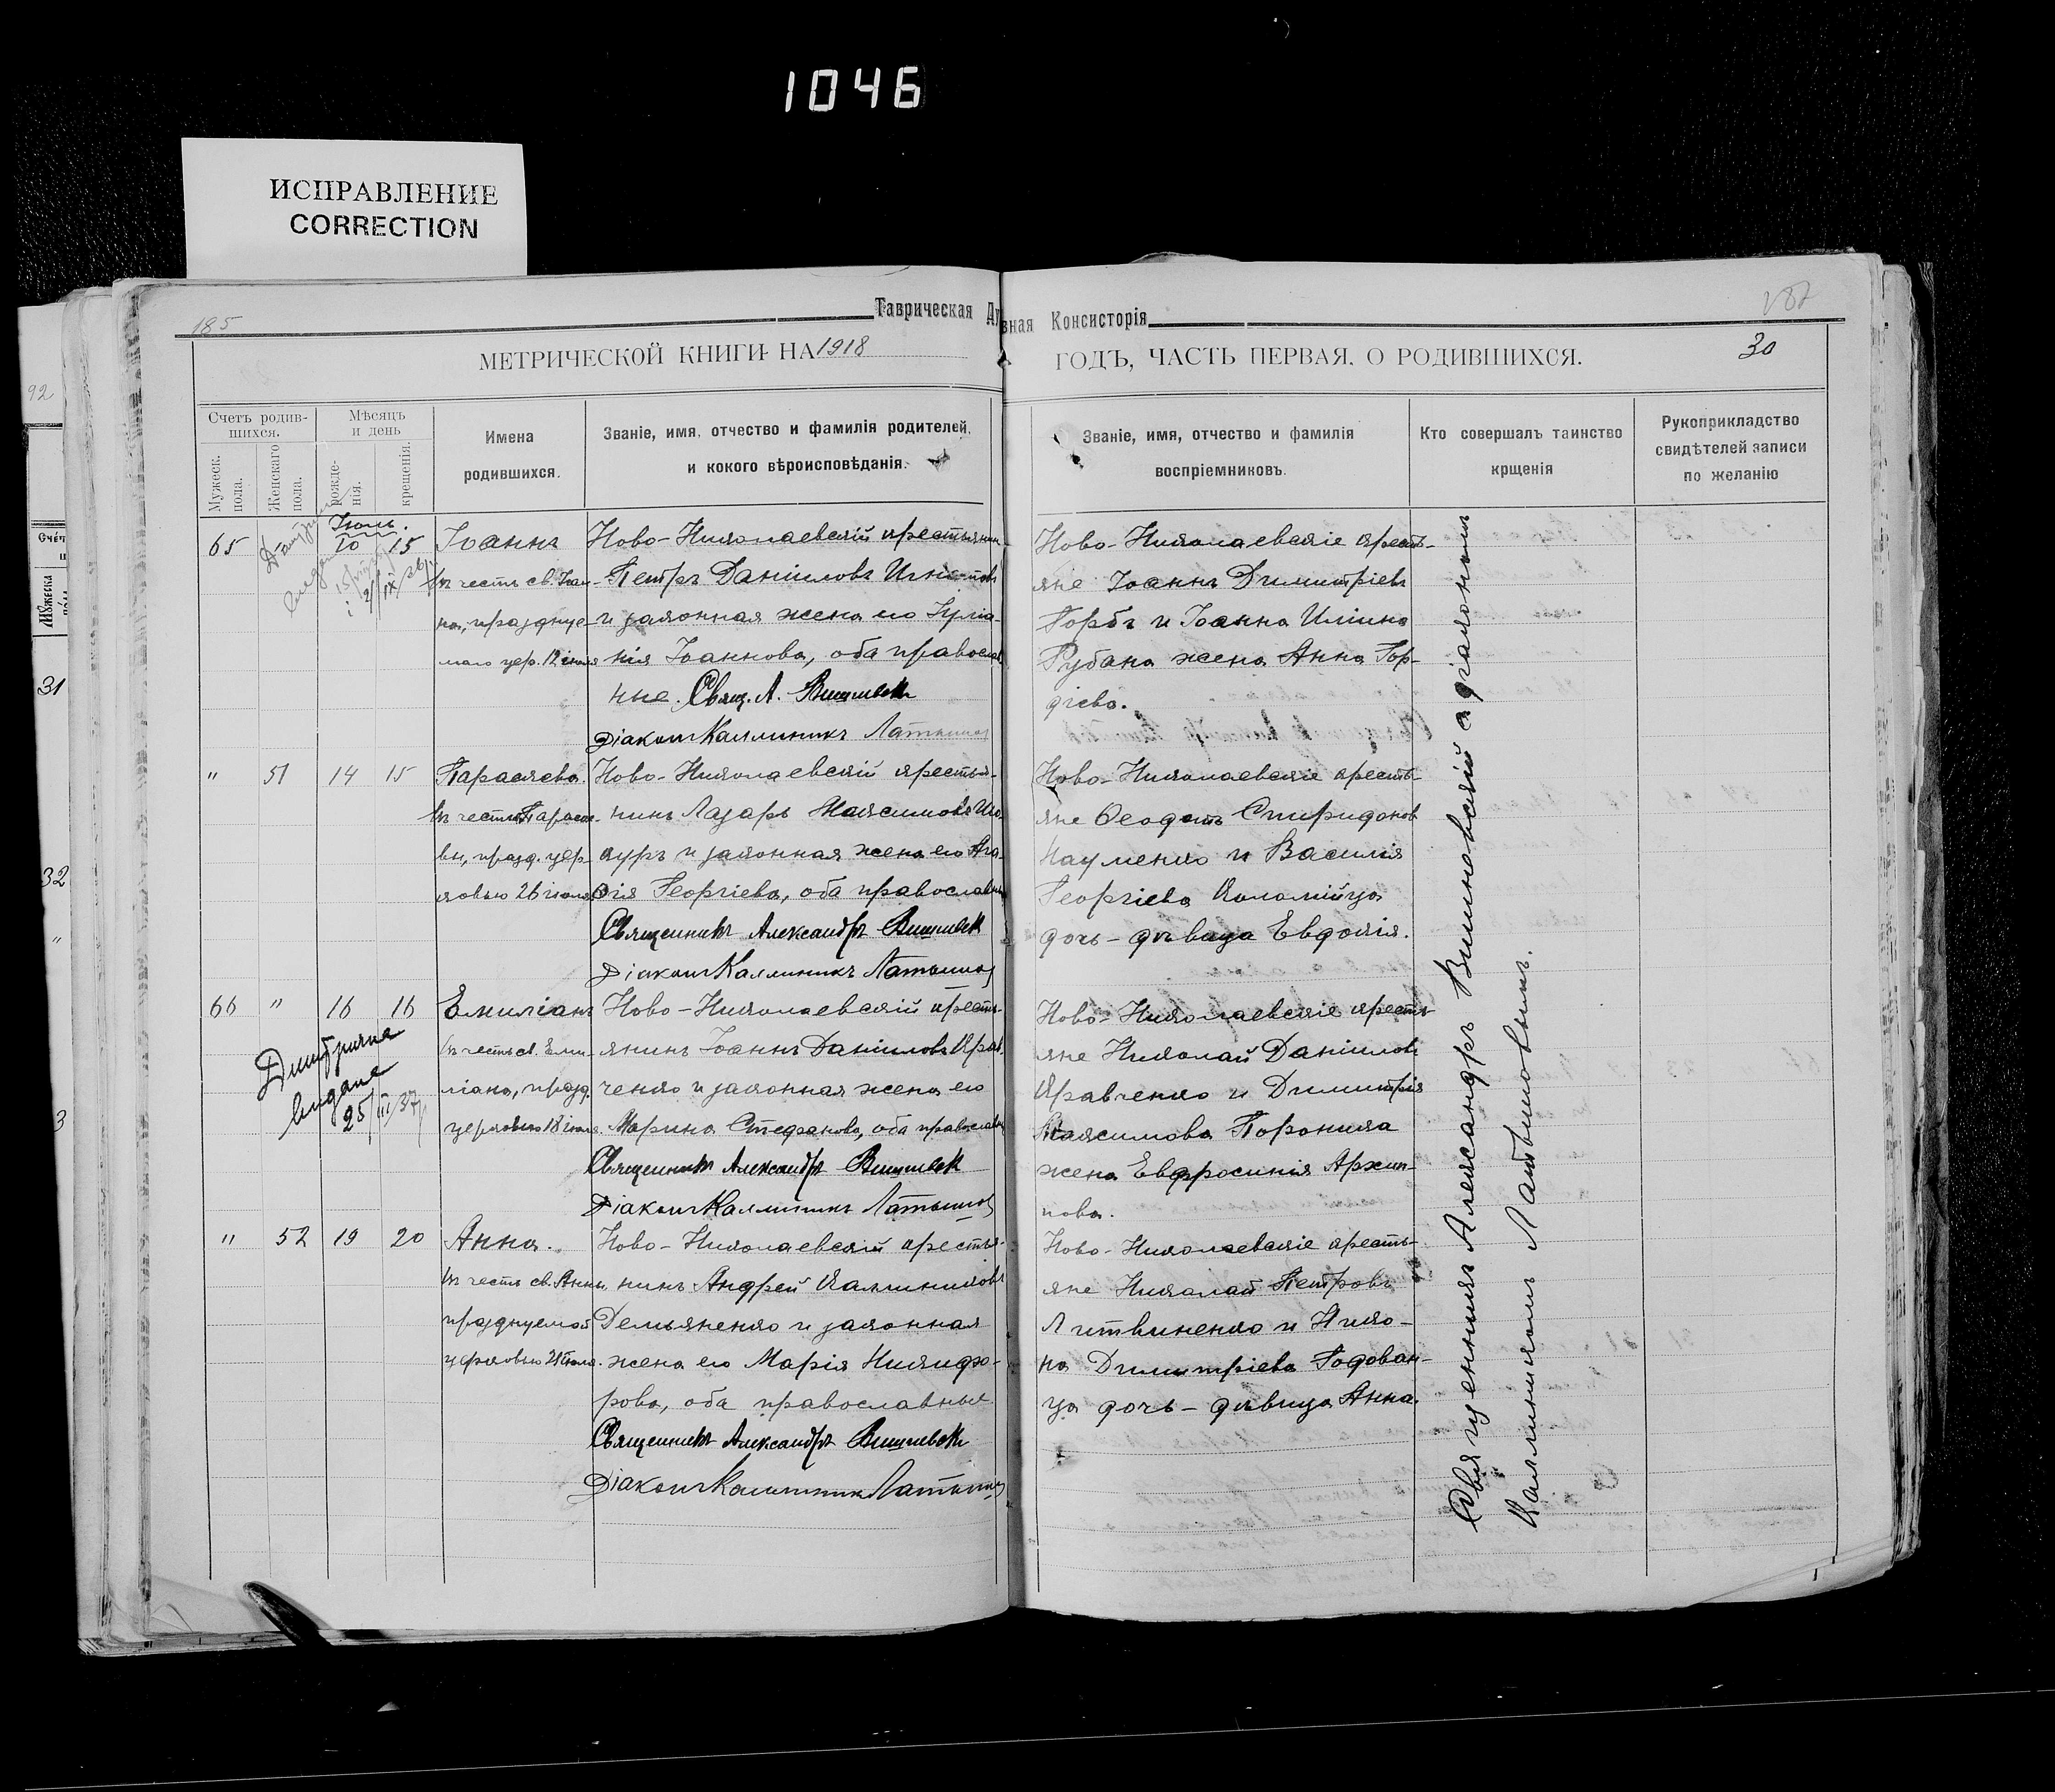 1046
ИСПРАВЛЕНИЕ
CORRECTION
185
Таврическая
вная Консисторія
МЕТРИЧЕСКОЙ КНИГИ НА 1918
ГОДЪ, ЧАСТЬ ПЕРВАЯ, О РОДИВШИХСЯ.
30
Счетъ родив-
шихся.
Мужеск. пола.
Женскаго пола.
Мѣсяцъ
и день
рожде-
нія.
крещенія.
Имена
родившихся.
Званіе, имя, отчество и фамилія родителей,
и кокого вѣроисповѣданія.
Званіе, имя, отчество и фамилія
воспріемниковъ.
Кто совершалъ таинство
крщенія
Рукоприкладство
свидѣтелей записи
по желанію
92
31
32
"
3
Іюль.
65 10 15
Іоаннъ
въ честь св. Іоан-
на, праздкуе-
маго цер. 12 іюля
Ново-Николаевскій крестьянин
Петръ Даніиловъ
и законная жена его Іуліа-
нія Іоаннова, оба православ
ные. Свящ. А. Вишневск
Діаконъ Каллиникъ Латышов
Ново-Николаевскіе кресть-
яне Іоаннъ Димитріевъ
Горбъ и Іоанна Иліина
Рубана жена Анна Гор-
діева.
" 51 14 15
Параскева.
въ честь Параске-
вы, празд. цер-
ковью 26 іюля
Ново-Николаевскій крестья-
нинъ Лазарь Максимовъ
и законная жена его Ага-
ѳія Георгіева, оба православн
Священникъ Александръ Вишневск
Діаконъ Каллиникъ Латышов
Ново-Николаевскіе кресть-
яне Ѳеодотъ Спиридонов
Науменко и Василія
Георгіева Коломійца
дочь-дѣвица Евдокія.
66 " 16 16
Дмитрияна
видане
25/III/37
Емиліанъ
въ честь св. Еми-
ліана, празд.
церковью 18 іюля.
Ново-Николаевскій кресть-
янинъ Іоаннъ Даніиловъ Крав
ченко и законная жена его
Марина Стефанова, оба православн
Священникъ Александръ Вишневск
Діаконъ Каллиникъ Латышов
Ново-Николаевскіе кресть-
яне Николай Даніиловъ
Кравченко и Димитрія
Максимова Поронила
жена Евфросинія Архип-
пова.
" 52 19 20
Анна.
въ честь св. Анны,
празднуемой
церковью 25 іюля.
Ново-Николаевскій крестья-
нинъ Андрей Каллиниковъ
Демьяненко и законная
жена его Марія Никифо-
рова, оба православные
Священникъ Александръ Вишневск
Діаконъ Каллиникъ Латышов
Ново-Николаевскіе кресть-
яне Николай Петровъ
Литвиненко и Нико-
на Димитріева Годован-
ца дочь-дѣвица Анна.
Священникъ Александръ Вишневскій с діакономъ
Каллиникомъ Латышовымъ.